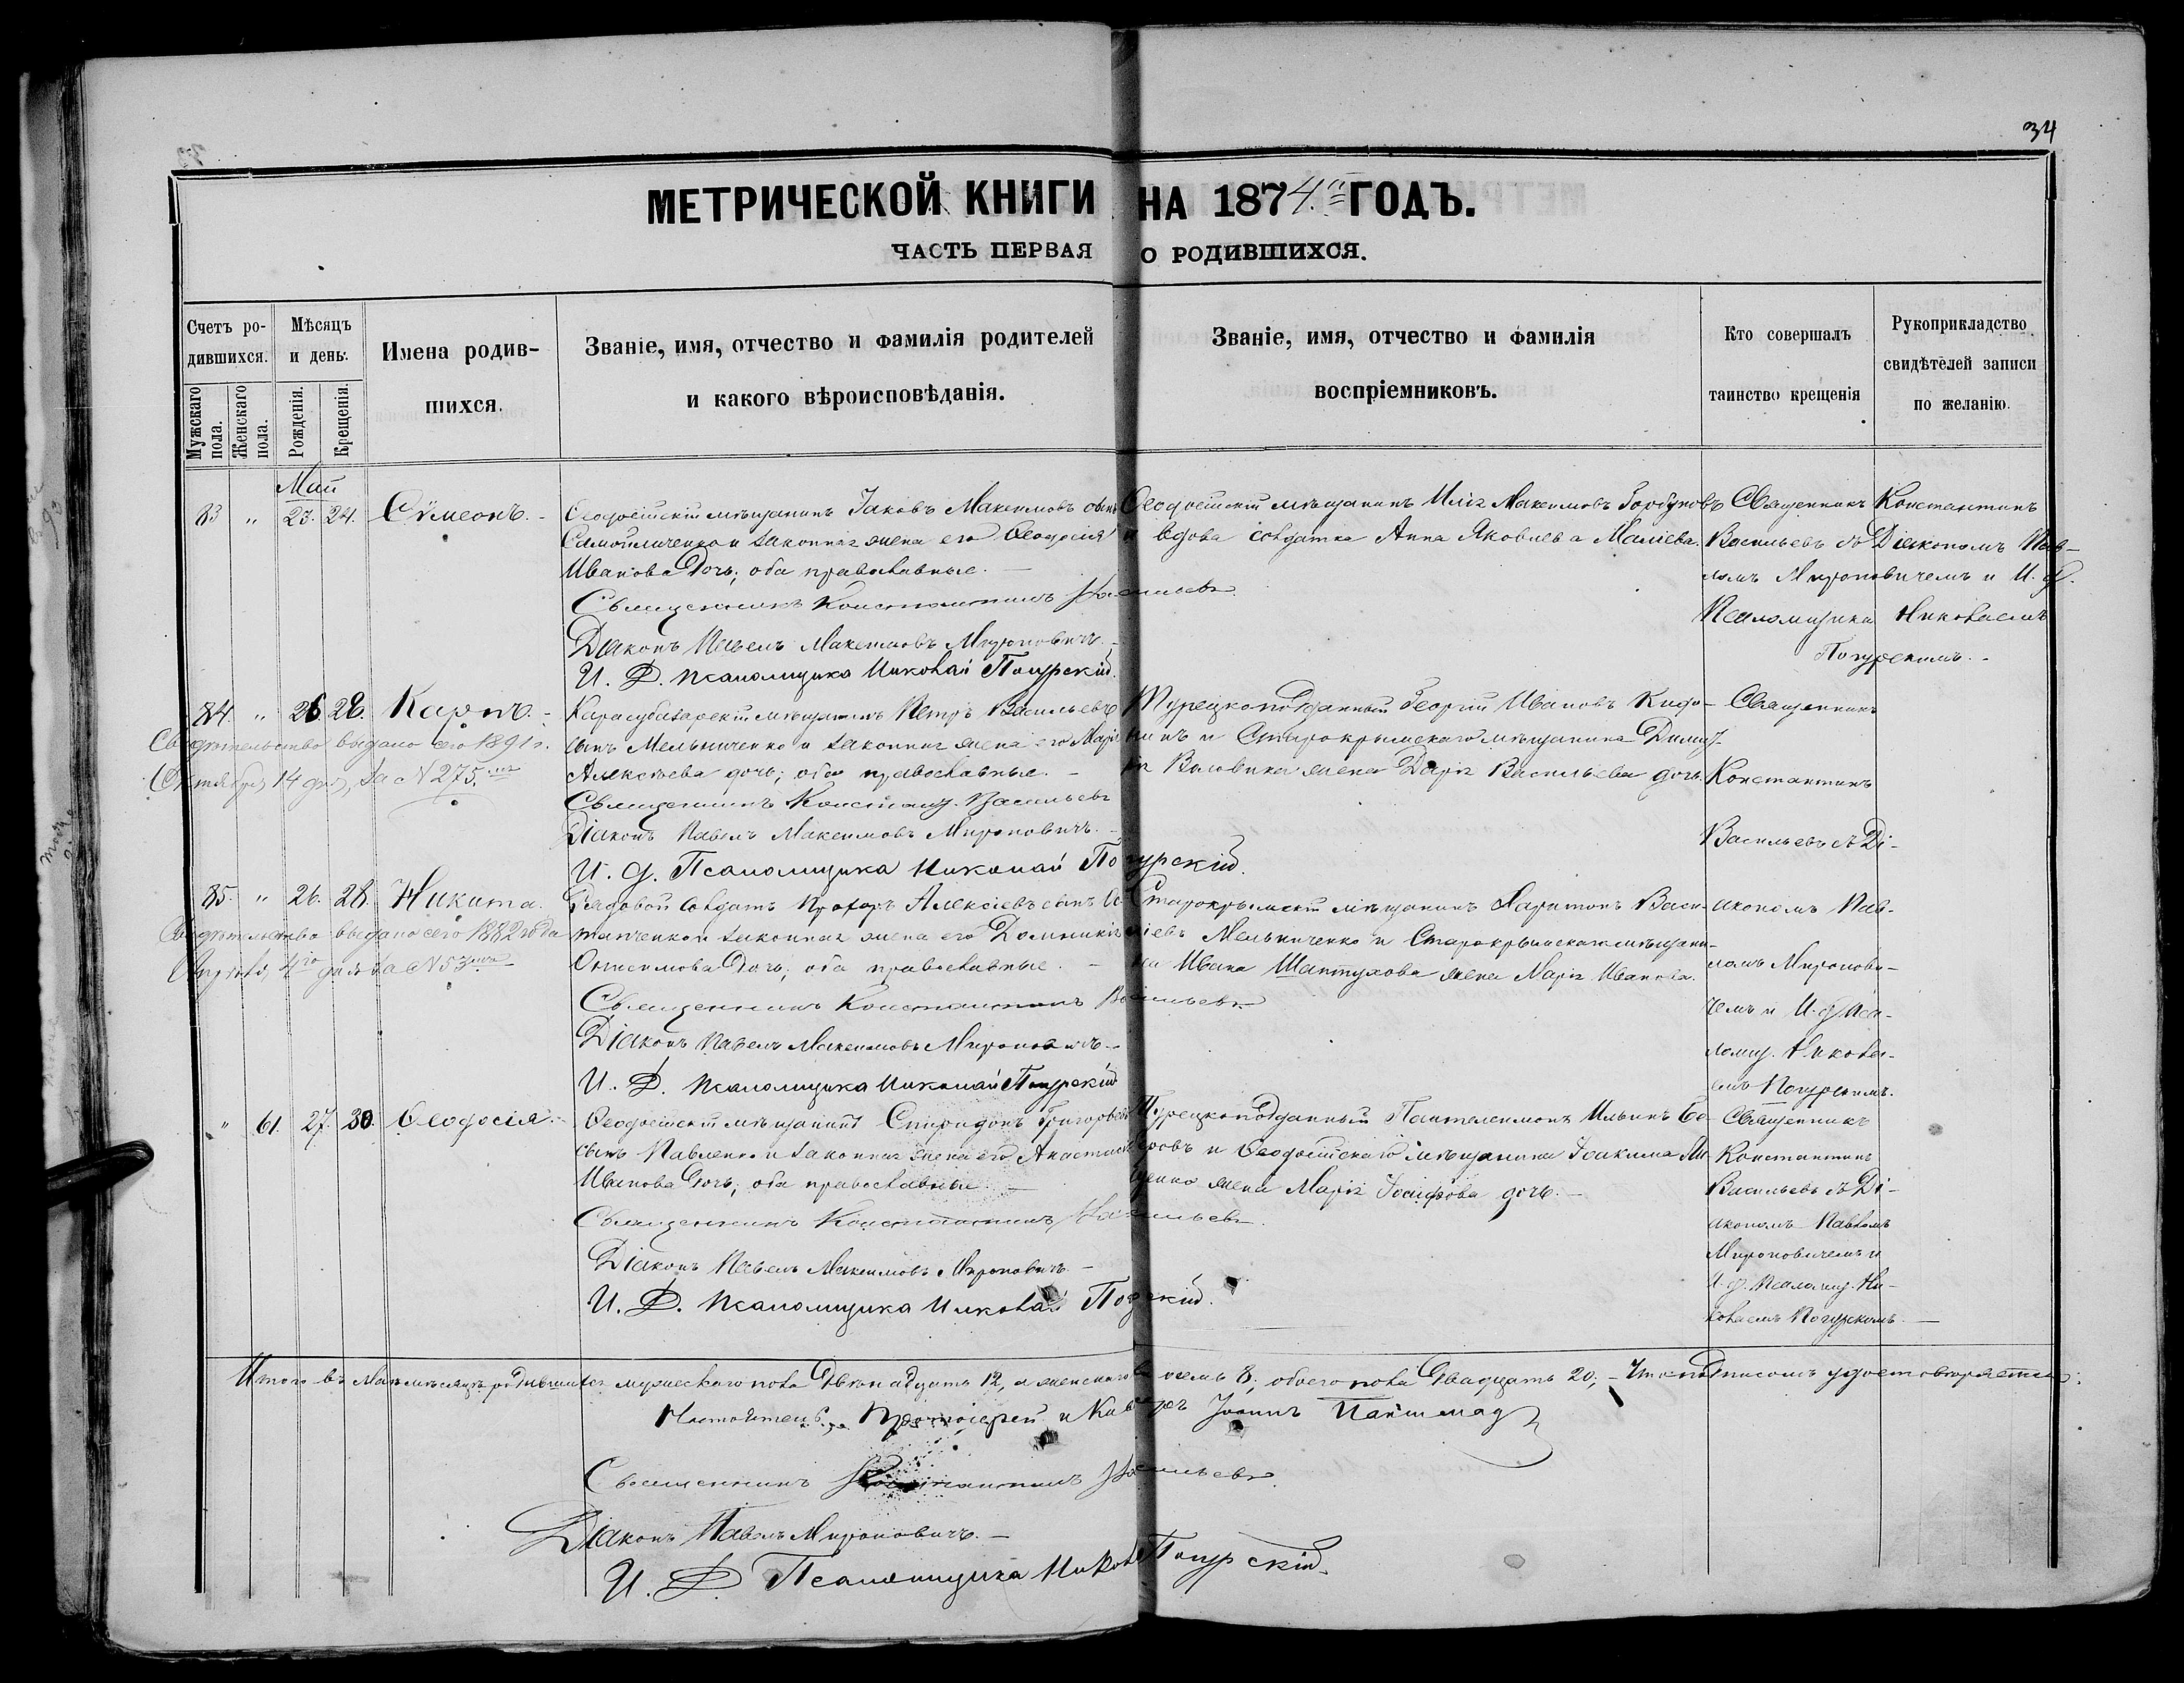 34
МЕТРИЧЕСКОЙ КНИГИ НА 1874й ГОДЪ.
ЧАСТЬ ПЕРВАЯ О РОДИВШИХСЯ.
Счетъ ро-
дившихся.
Мужскаго пола.
Женскаго пола.
Мѣсяцъ
и день.
Рожденія.
Крещенія.
Имена родив-
шихся.
Званіе, имя, отчество и фамилія родителей
и какого вѣроисповѣданія.
Званіе, имя, отчество и фамилія
воспріемниковъ.
Кто совершалъ
таинство крещенія
Рукоприкладство
свидѣтелей записи
по желанію.
Май
83 " 23. 24. Сѵмеонъ.
Ѳеодосійскій мѣщанинъ Іаковъ Максимовъ сынъ
Самойличенко и законная жена его Ѳеодосія
Иванова дочь; оба православные.
Священникъ Константинъ Васильевъ
Діаконъ Павелъ Максимовъ Мироновичъ.
И. Д. Псаломщика Николай Погурскій.
Ѳеодосійскій мѣщанинъ Илія Максимовъ Горбуновъ
и вдова солдатка Анна Яковлева Маліева.
Священникъ Константинъ
Васильевъ съ Діакономъ Пав-
ломъ Мироновичемъ и И. д.
Псаломщика Николаемъ
Погурскимъ.
84. " 26. 28. Карпъ.
Свидѣтельство выдано сего 1891 г.
Октября 14 дня, за N 275.
Карасубазарскій мѣщанинъ Петръ Васильевъ
сынъ Мельниченко и законная жена его Марія
Алексѣева дочь; оба православные.
Священникъ Констант. Васильевъ
Діаконъ Павелъ Максимовъ Мироновичъ.
И. д. Псаломщика Николай Погурскій.
Турецкоподданный Георгій Ивановъ
и Старокрымскаго мѣщанина
жена Дарія Васильева дочь.
Священникъ
Константинъ
Васильевъ съ Ді-
акономъ Пав-
ломъ Миронови-
чемъ и И. д. Пса-
ломщ. Никола-
емъ Погурскимъ.
85. " 26. 28. Никита.
Свидѣтельство выдано сего 1882 года
Апрѣля, 4го дня за N 53
Рядовой солдатъ Прохоръ Алексіевъ сынъ
и законная жена его Домникія
Онисимова дочь; оба православные.
Священникъ Константинъ Васильевъ
Діаконъ Павелъ Максимовъ Мироновичъ.
И. Д. Псаломщика Николай Погурскій
Старокрымскій мѣщанинъ Харитонъ Васи-
ліевъ Мельниченко и Старокрымскаго мѣщани-
на Ивана Шаптухова жена Марія Иванова.
" 61. 27. 30. Ѳеодосія.
Ѳеодосійскій мѣщанинъ Спиридонъ Григорьевъ
сынъ Павленко и законная жена его Анастасія
Иванова дочь; оба православные.
Священникъ Константинъ Васильевъ.
Діаконъ Павелъ Максимовъ Мироновичъ
И. Д. Псаломщика Николай Погурскій.
Турецкоподданный Пантелеимонъ Ильинъ
и Ѳеодосійскаго мѣщанина Іоакима
жена Марія Іосифова дочь.
Священникъ
Константинъ
Васильевъ съ Ді-
акономъ Павломъ
Мироновичемъ и
И. д. Псаломщ. Ни-
колаемъ Погурскимъ.
Итого въ Маѣ мѣсяцѣ родившихся мужескаго пола Двѣнадцать 12, а женскаго восемь 8; обоего пола Двадцать 20; Что подписомъ удостовѣряется:
Настоятель, Протоіерей и Кавалеръ Іоаннъ
Священникъ Константинъ Васильевъ.
Діаконъ Павелъ Мироновичъ.
И. Д. Псаломщика Николай Погурскій.